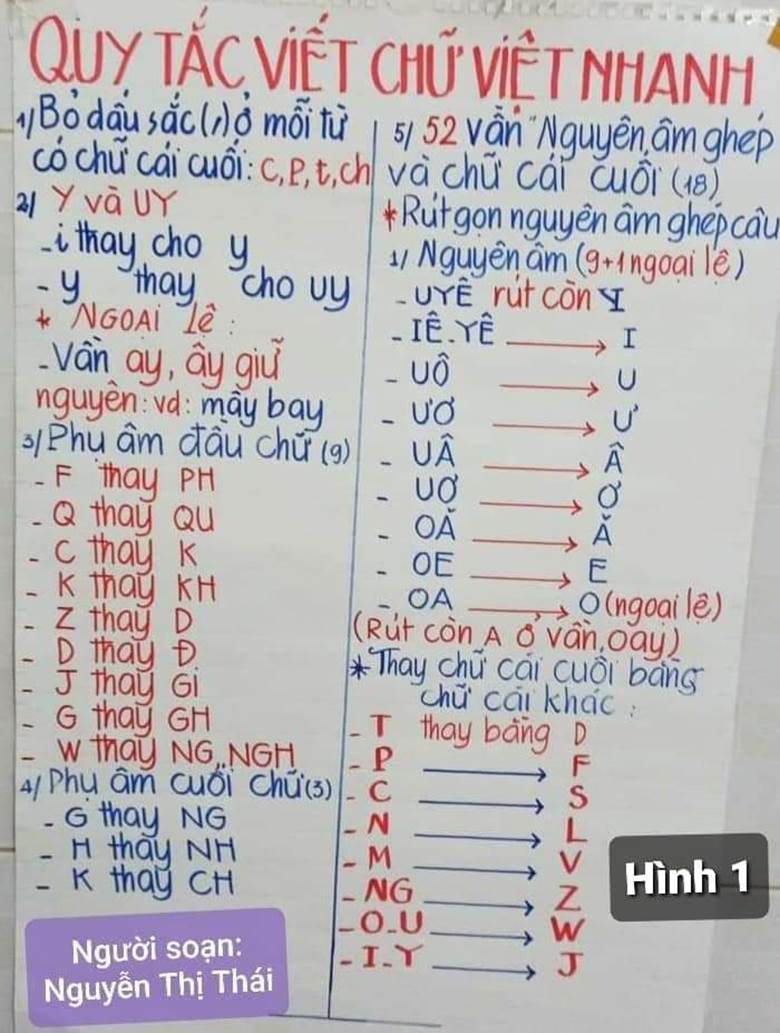 QUY TẮC VIẾT CHỮ VIỆT NHANH
1/ Bỏ dấu sắc (/) ở mỗi từ
có chữ cái cuối: C, P, t, ch
2/ Y và UY
- i thay cho y
- y thay cho uy
* NGOẠI LỆ:
- Vần ay, ây giữ
nguyên: vd: mây bay
3/ Phụ âm đầu chữ (9)
- F thay PH
- Q thay QU
- C thay K
- K thay KH
- Z thay D
- D thay Đ
- J thay Gi
- G thay GH
- W thay NG, NGH
4/ Phụ âm cuối chữ (3)
- G thay NG
- H thay NH
- K thay CH
5/ 52 vần "Nguyên âm ghép
và chữ cái cuối (18)
* Rút gọn nguyên âm ghép câu
1/ Nguyên âm (9+1 ngoại lệ)
- UYÊ rút còn Y
- IÊ.YÊ → I
- UÔ → U
- ƯƠ → Ư
- UÂ → Â
- UƠ → Ơ
- OĂ → Ă
- OE → E
- OA → O (ngoại lệ)
(Rút còn A ở vần, oay)
* Thay chữ cái cuối bằng
chữ cái khác:
- T thay bằng D
- P → F
- C → S
- N → L
- M → V
- NG → Z
- O-U → W
- I-Y → J
Hình 1
Người soạn:
Nguyễn Thị Thái